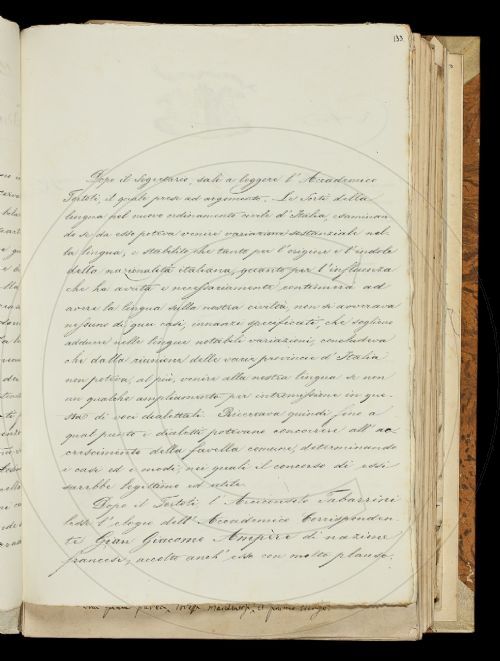 133
Dopo il Segretario, salì a leggere l'Accademico
Tortoli, il quale prese ad argomento, Le Sorti della
lingua nel nuovo ordinamento civile d'Italia, esaminan-
do se da esso poteva venire variazione sostanziale nel-
la lingua, e stabilito che tanto per l'origine e l'indole
della nazionalità italiana, quanto per l'influenza
che ha avuta e necessariamente continuerà ad
avere la lingua sulla nostra civiltà, non si avverava
nessuno di quei casi, innanzi specificati, che sogliono
addurre nelle lingue notabili variazioni, concludeva
che dalla riunione delle varie provincie d'Italia
non poteva, al più, venire alla nostra lingua se non
un qualche ampliamento per intromissione in que-
sta di voci dialettali. Ricercava quindi fino a
qual punto i dialetti potevano concorrere all'ac-
crescimento della favella comune, determinando
i casi ed i modi, nei quali il concorso di essi
sarebbe legittimo ed utile.
Dopo il Tortoli, l'Arciconsolo Tabarrini
lesse l'elogio dell'Accademico Corrisponden-
te Gian Giacomo Ampère di nazione
francese, accolto anch'esso con molto plauso.